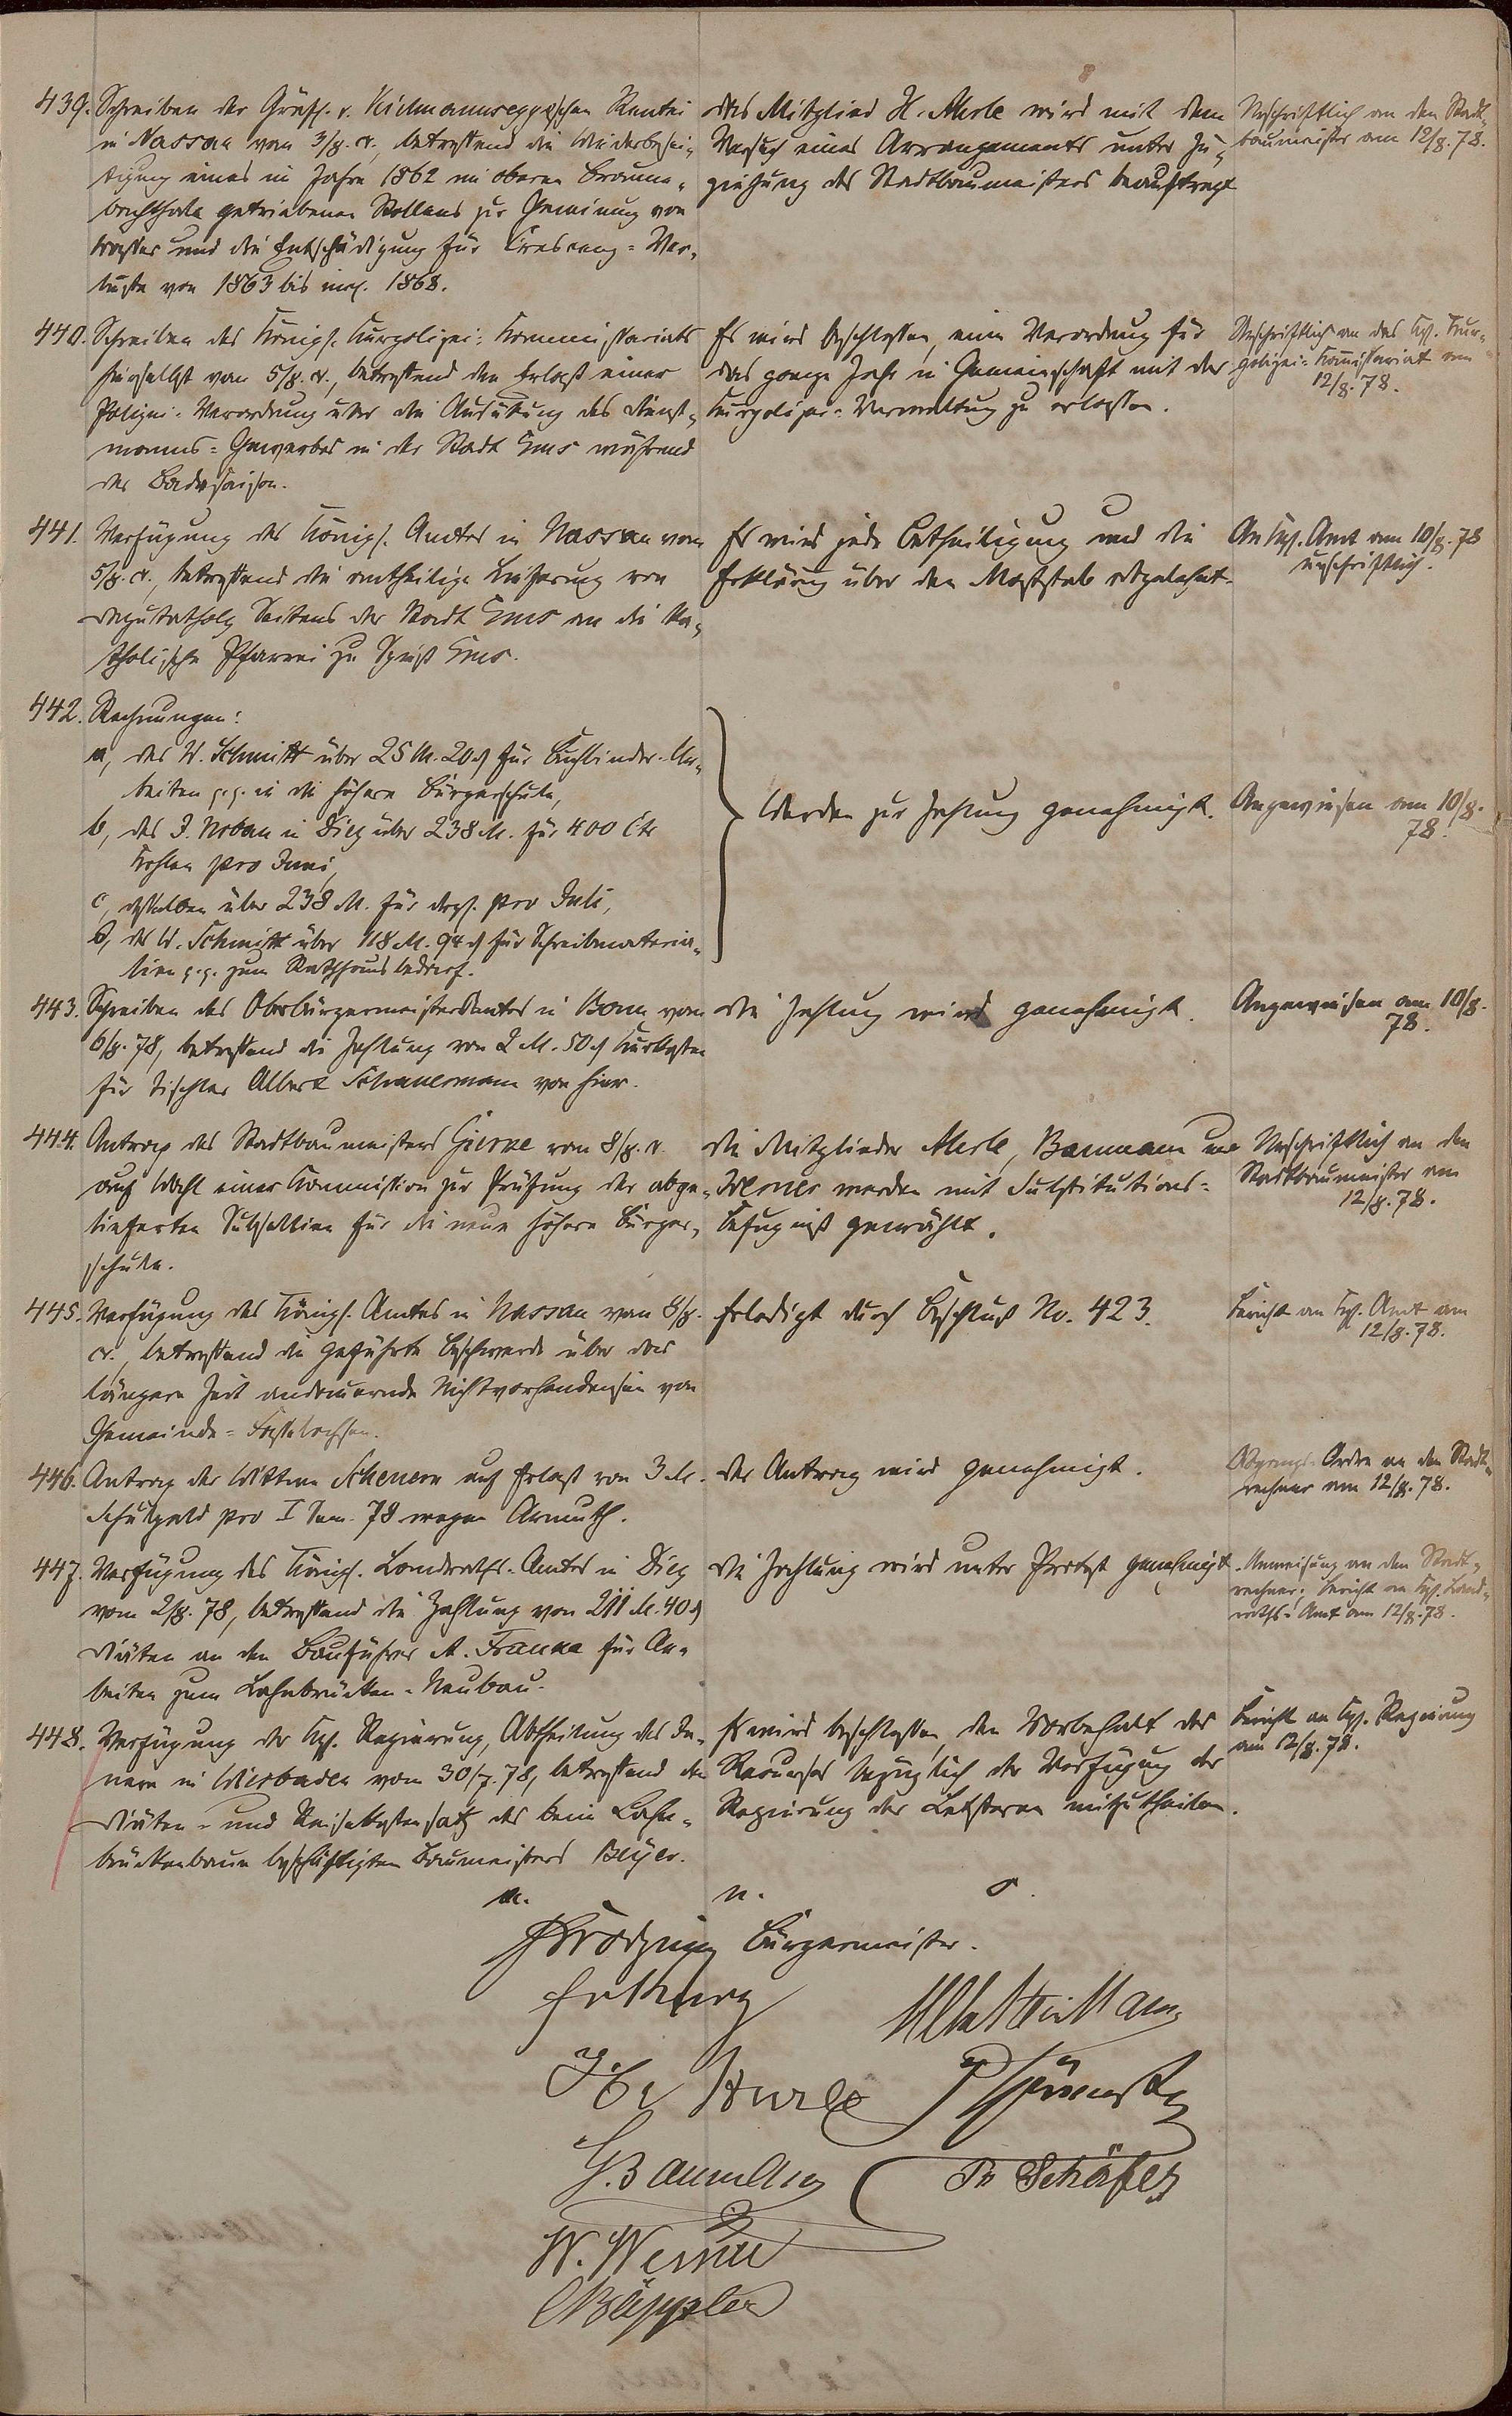 439. Schreiben der Gräfl. v. Kielmannseggeschen Rentei
in Nassau vom 3/8. cr., betreffend die Wiederbesei-
tigung eines im Jahre 1862 im oberen Braune-
bachthale getriebenen Stollens zur Gewinnung von
Wasser und die Entschädigung für Crescenz-Ver-
luste von 1863 bis incl. 1868.
Das Mitglied H. Merle wird mit dem
Versuch eines Arrangements unter Zu-
ziehung des Stadtbaumeisters beauftragt
Urschriftlich an den Stadt-
baumeister am 12/8. 78.
440. Schreiben des Königl. Kurpolizei-Kommissariats
hierselbst vom 5/8. cr., betreffend den Erlaß einer
Polizei-Verordnung über die Ausübung des Dienst-
manns-Gewerbes in der Stadt Ems während
der Badesaison.
Es wird beschlossen, eine Verordnung für
das ganze Jahr in Gemeinschaft mit der
Kurpolizei-Verwaltung zu erlassen.
Urschriftlich an das Kgl. Kur-
polizei-Kommissariat am
12/8. 78.
441. Verfügung des Königl. Amtes in Nassau vom
5/8. cr., betreffend die antheilige Lieferung von
Deputatholz Seitens der Stadt Ems an die ka-
tholische Pfarrei zu Spieß Ems.
Es wird jede Betheiligung und die
Erklärung über den Maßstab abgelehnt.
An Kgl. Amt am 10/8. 78
urschriftlich.
442. Rechnungen:
a, des W. Schmitt über 25 M. 20 ₰ für Buchbinder-Ar-
beiten p.p. in die höhere Bürgerschule,
b, des J. Noban in Diez über 238 M. für 400 Ctr
Kohlen pro Juni,
c, desselben über 238 M. für dergl. pro Juli,
d, des W. Schmitt über 118 M. 94 ₰ für Schreibmateria-
lien p.p. zum Rathhausbedarf.
Werden zur Zahlung genehmigt.
Angewiesen am 10/8.
78.
443. Schreiben des Oberbürgermeisteramtes in Bonn vom
6/8. 78, betreffend die Zahlung von 2 M. 50 ₰ Kurkosten
für Tischler Albert Schauermann von hier.
Die Zahlung wird genehmigt.
Angewiesen am 10/8.
78.
444. Antrag des Stadtbaumeisters Gierne vom 8/8. cr.
auf Wahl einer Kommission zur Prüfung der abge-
lieferten Subsellien für die neue höhere Bürger-
schule.
Die Mitglieder Merle, Baumann und
Werner werden mit Substitutions-
Befugniß gewählt.
Urschriftlich an den
Stadtbaumeister am
12/8. 78.
445. Verfügung des Königl. Amtes in Nassau vom 8/8.
cr., betreffend die geführte Beschwerde über das
längere Zeit andauernde Nichtvorhandensein von
Gemeinde-Faselochsen.
Erledigt durch Beschluß No. 423.
Bericht an Kgl. Amt am
12/8. 78.
446. Antrag der Wittwe Scheuern auf Erlaß von 3 M.
Schulgeld pro I Sem. 78 wegen Armuth.
Der Antrag wird genehmigt.
Abgangs-Ordre an den Stadt-
rechner am 12/8. 78.
447. Verfügung des Königl. Landraths-Amtes in Diez
vom 2/8. 78, betreffend die Zahlung von 211 M. 40 ₰
Diäten an den Bauführer A. Franke für Ar-
beiten zum Lahnbrücken-Neubau.
Die Zahlung wird unter Protest genehmigt
Anweisung an den Stadt-
rechner. Bericht an Kgl. Land-
raths-Amt am 12/8. 78.
448. Verfügung der Kgl. Regierung, Abtheilung des In-
nern in Wiesbaden vom 30/7. 78, betreffend den
Diäten- und Reisekostensatz des beim Lahn-
brückenbau beschäftigten Baumeisters Beyer.
Es wird beschlossen, den Vorbehalt des
Recurses bezüglich der Verfügung der
Regierung der Letzteren mitzutheilen.
Bericht an Kgl. Regierung
am 12/8. 78.
u. n. o.
Bürgermeister.
G. Baumann
Ph Schäfer
W. Werner